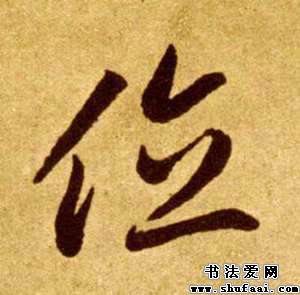 俭
书法爱网
www.shufaai.com